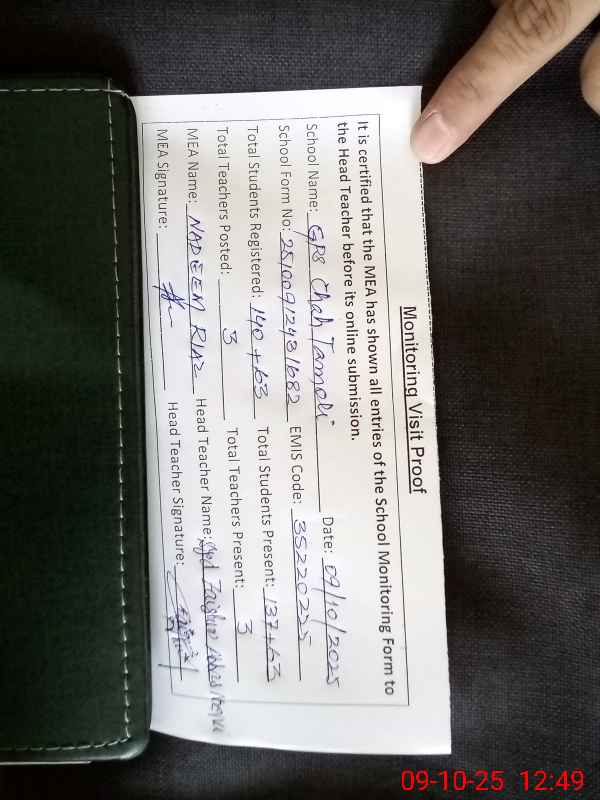 Monitoring Visit Proof
It is certified that the MEA has shown all entries of the School Monitoring Form to
the Head Teacher before its online submission.
School Name: GPS Chah Tamoli Date: 09/10/2025
School Form No: 25100912431682 EMIS Code: 35220225
Total Students Registered: 140+63 Total Students Present: 137+63
Total Teachers Posted: 3 Total Teachers Present: 3
MEA Name: NADEEM RIAZ Head Teacher Name: Syed
MEA Signature: Head Teacher Signature:
09-10-25 12:49